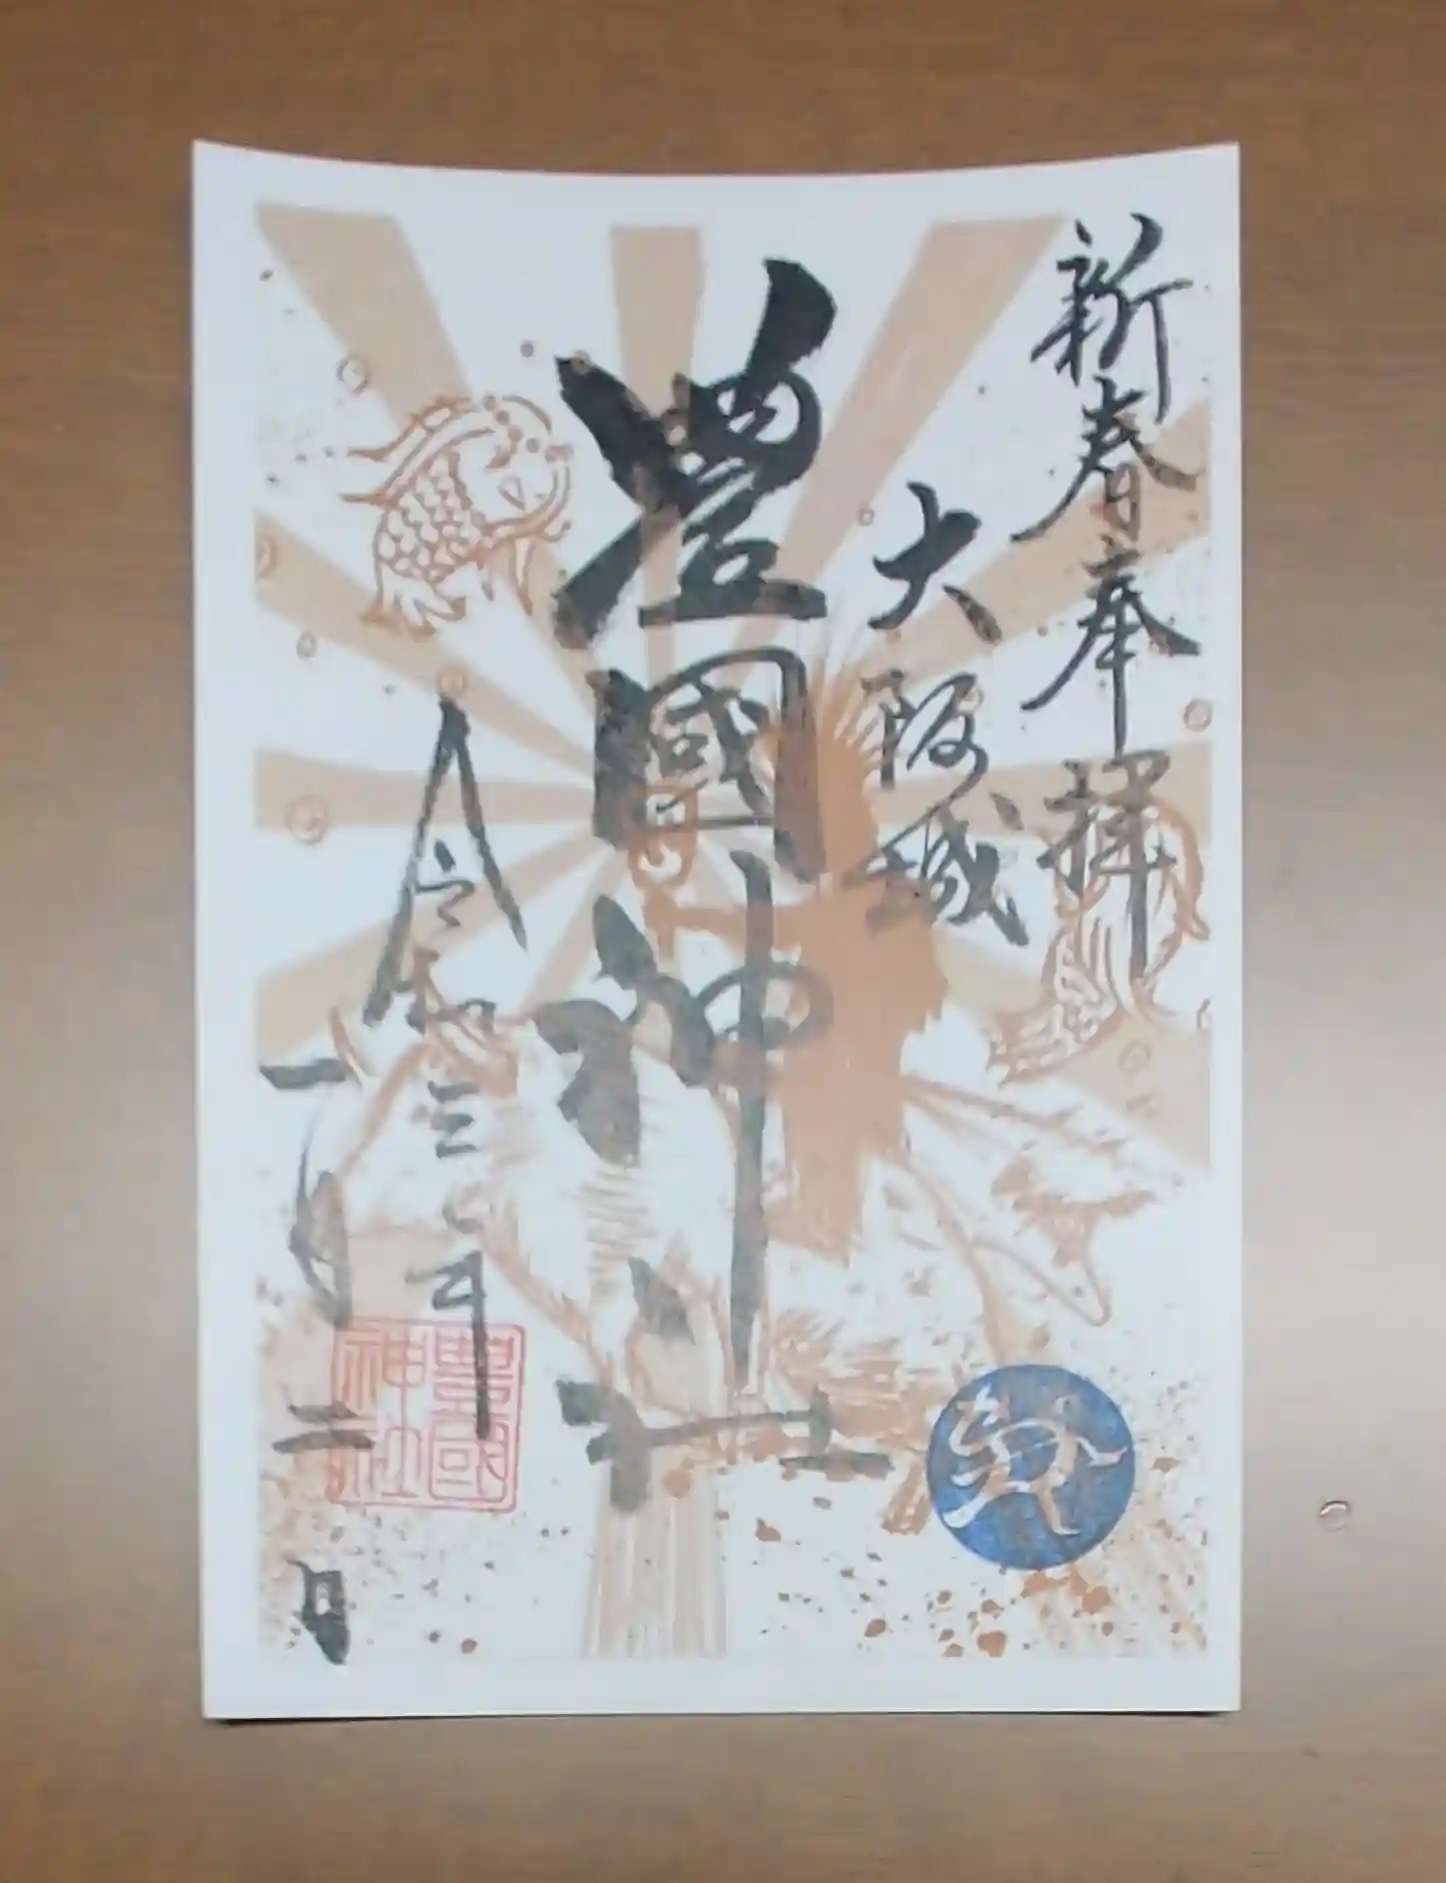 新春奉拝
大阪城
豊國神社
令和三年
一月二日
豊國
神社